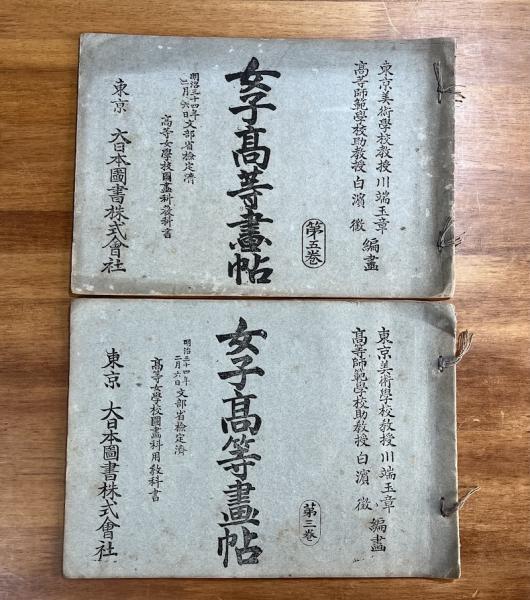 東京美術學校教授川端玉章
高等師範學校助教授白濱徵
編畫
女子高等畫帖
第五卷
明治三十四年
二月六日文部省檢定濟
高等女學校圖畫科教科書
東京 大日本圖書株式會社
東京美術學校教授川端玉章
高等師範學校助教授白濱徵
編畫
女子高等畫帖
第三卷
明治三十四年
二月六日文部省檢定濟
高等女學校圖畫科用教科書
東京 大日本圖書株式會社